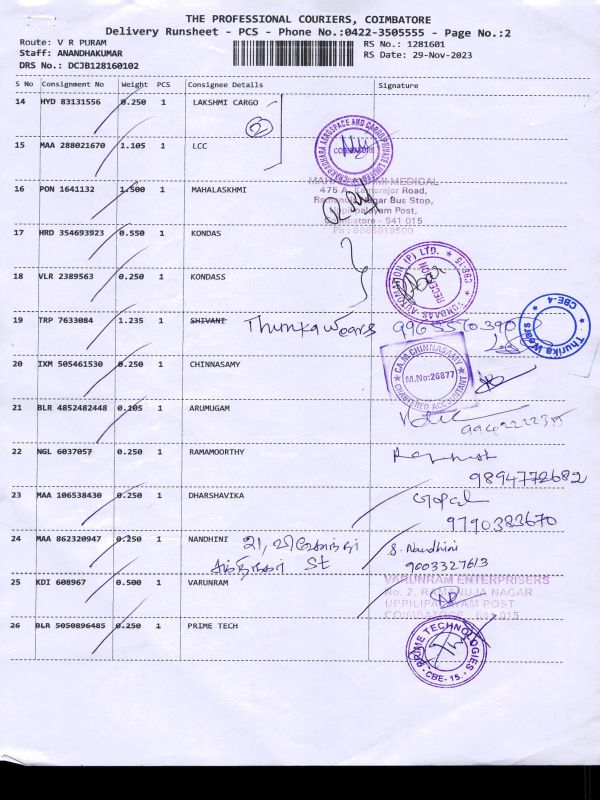 THE PROFESSIONAL COURIERS, COIMBATORE
Delivery Runsheet - PCS - Phone No.:0422-3505555 - Page No.:2
Route: V R PURAM
RS No.: 1281601
Staff: ANANDHAKUMAR
RS Date: 29-Nov-2023
DRS No.: DCJB128160102
S No Consignment No Weight PCS Consignee Details Signature
14 HYD 83131556 0.250 1 LAKSHMI CARGO
2
15 MAA 288021670 1.105 1 LCC
COIMBATORE
16 PON 1641132 1.500 1 MAHALASKHMI
MEDICAL
475 A, Kamarajar Road,
Ramanuja Nagar Bus Stop,
Uppilipalayam Post,
Coimbatore - 641 015
17 HRD 354693923 0.550 1 KONDAS
18 VLR 2389563 0.250 1 KONDASS
RECEPTION
19 TRP 7633084 1.235 1 SHIVANI Thurika Wears
Thurika Wears CBE-4
20 IXM 505461530 0.250 1 CHINNASAMY
CA.M.CHINNASAMY
M.No:26877
CHARTERED ACCOUNTANT
21 BLR 4852482448 0.105 1 ARUMUGAM
22 NGL 6037057 0.250 1 RAMAMOORTHY
9894772682
23 MAA 106538430 0.250 1 DHARSHAVIKA
Gopal
9790383670
24 MAA 862320947 0.250 1 NANDHINI 21,
St
S. Nandhini
9003327613
25 KDI 608967 0.500 1 VARUNRAM
VARUNRAM ENTERPRISERS
No. 2, RAMANUJA NAGAR
UPPILIPALAYAM POST
COIMBATORE - 641 015
26 BLR 5050896485 0.250 1 PRIME TECH
PRIME TECHNOLOGIES
CBE-15.